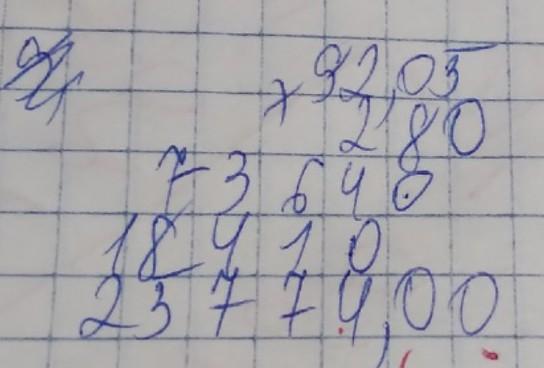 × 92,05
280
73640
18410
23774,00